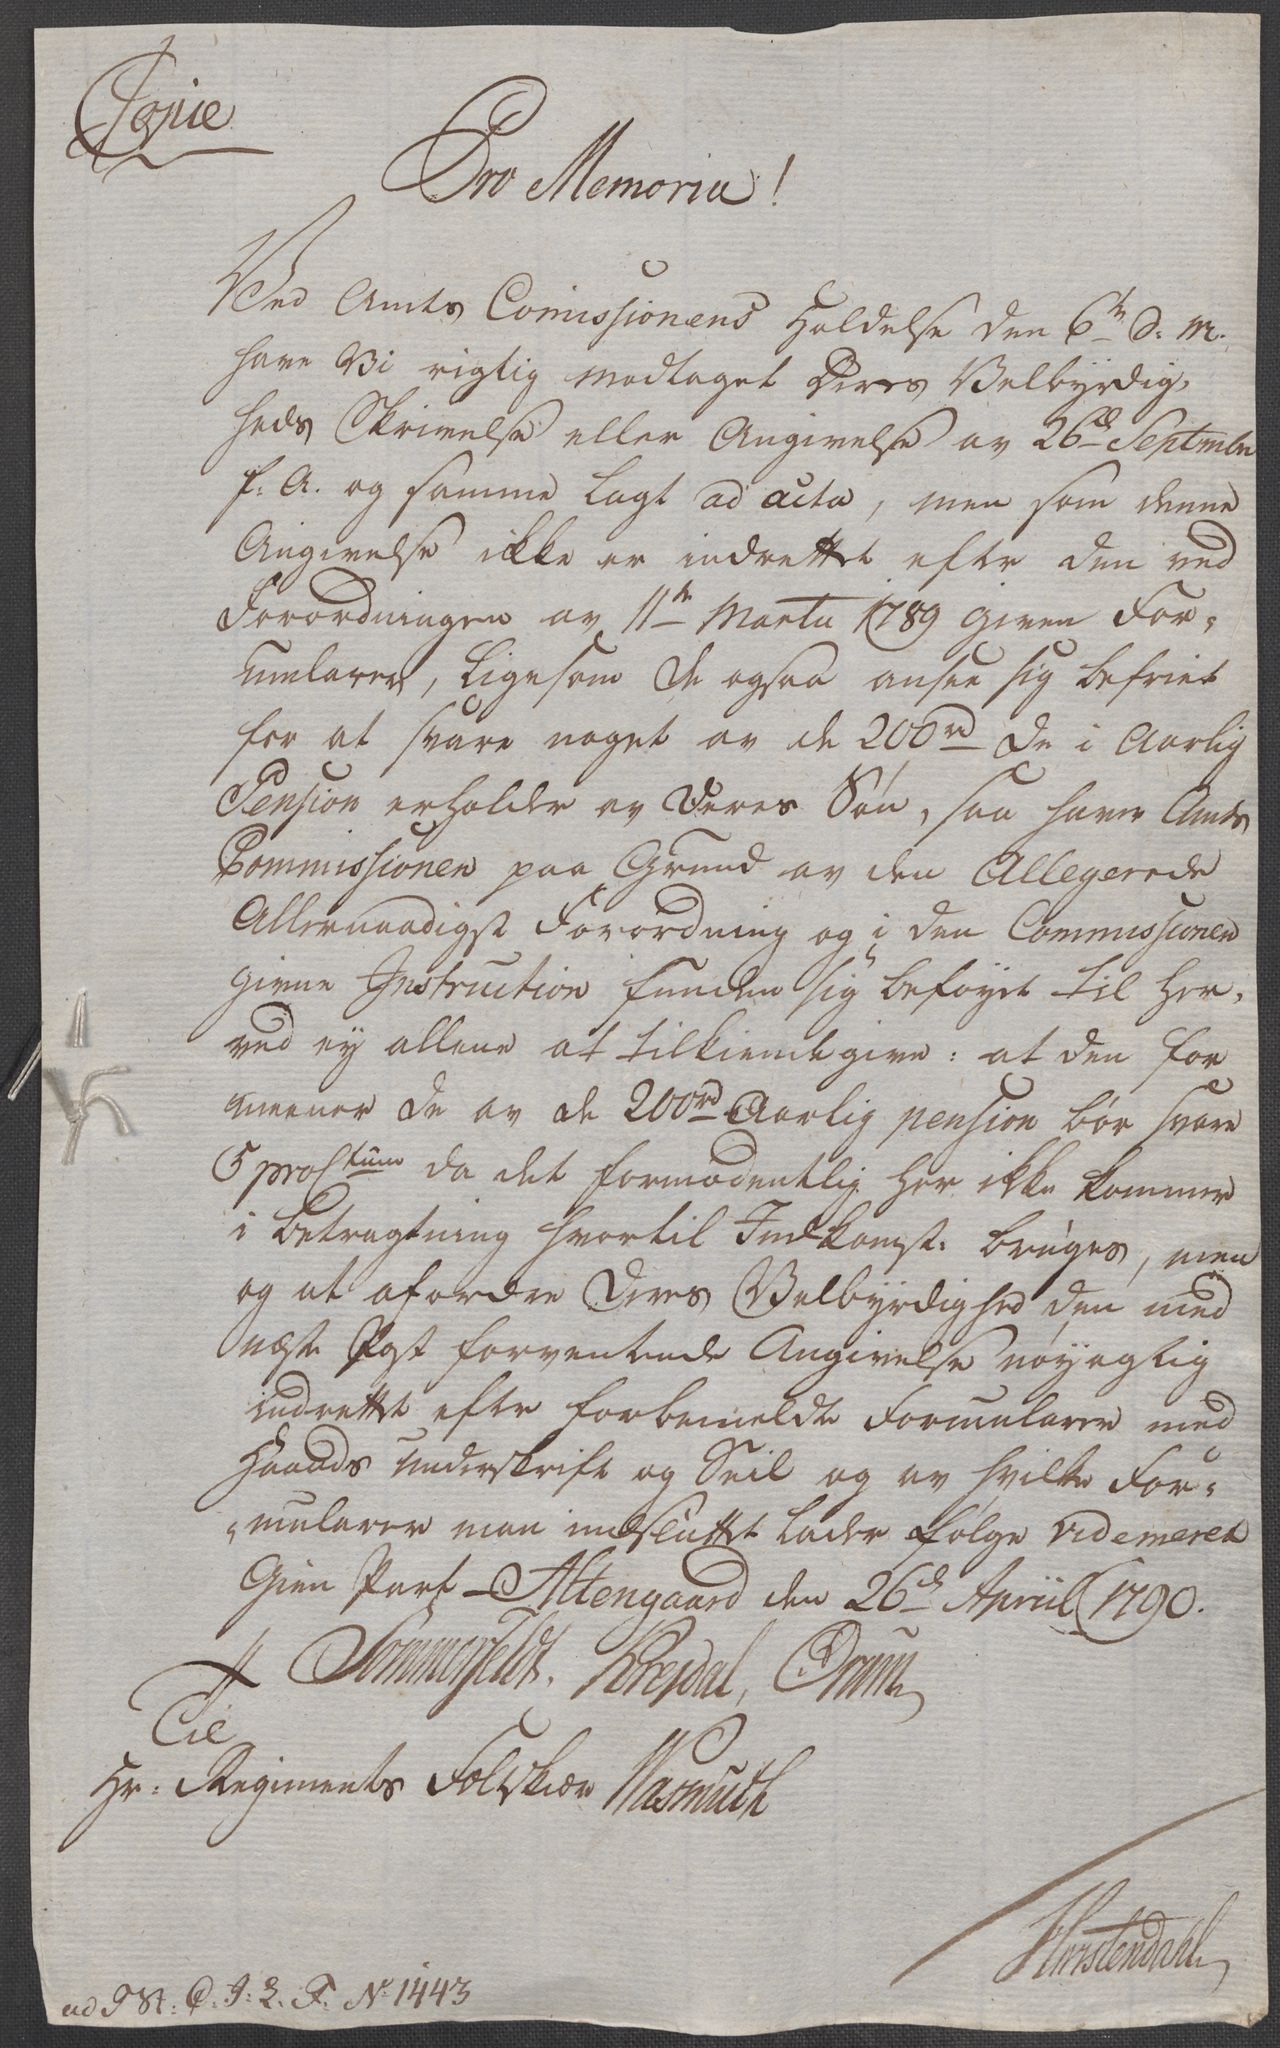 Copie
Pro Memoria!
Ved Amts Comissionens Holdelse den 6te d: M:
have Vi rigtig modtaget Deres Velbyrdig,
heds Skrivelse eller Angivelse av 26de Septembr
f: A. og samme lagt ad acta, men som denne
Angivelse ikke er indrettet efter den ved
Forordningen av 11te Martii 1789 given For-
mularer, ligesom De ogsaa ansee sig befriet
for at svare noget av de 200rd De i Aarlig
Pension erholder av Deres Søn, saa haver Amts
Commissionen paa Grund av den Allegerede
Allernaadigst Forordning og i den Commissionen
givne Instruction funden sig beføyet til her,
ved ey allene at tilkiendegive: at den for
meener De av de 200rd Aarlig pension bør svare
5 proCtum da det formodentlig her ikke kommer
i betragtning hvortil Indkomst: bruges, men
og at afordre Deres Velbyrdighed den med
næste Post forventende Angivelse nøyagtig
indrettet efter forbemeldte Formularer med
Haands underskrift og Seil og av hvilke For-
-mularer man indsluttet lader følge videmeret
Gien Part – Altengaard den 26de Apriil 1790.
Sommerfeldt. Krejdal, Gram
Til
Hr: Regiments Feltskiær Wasmuth
ad I St: C. I: L. F. No 1443